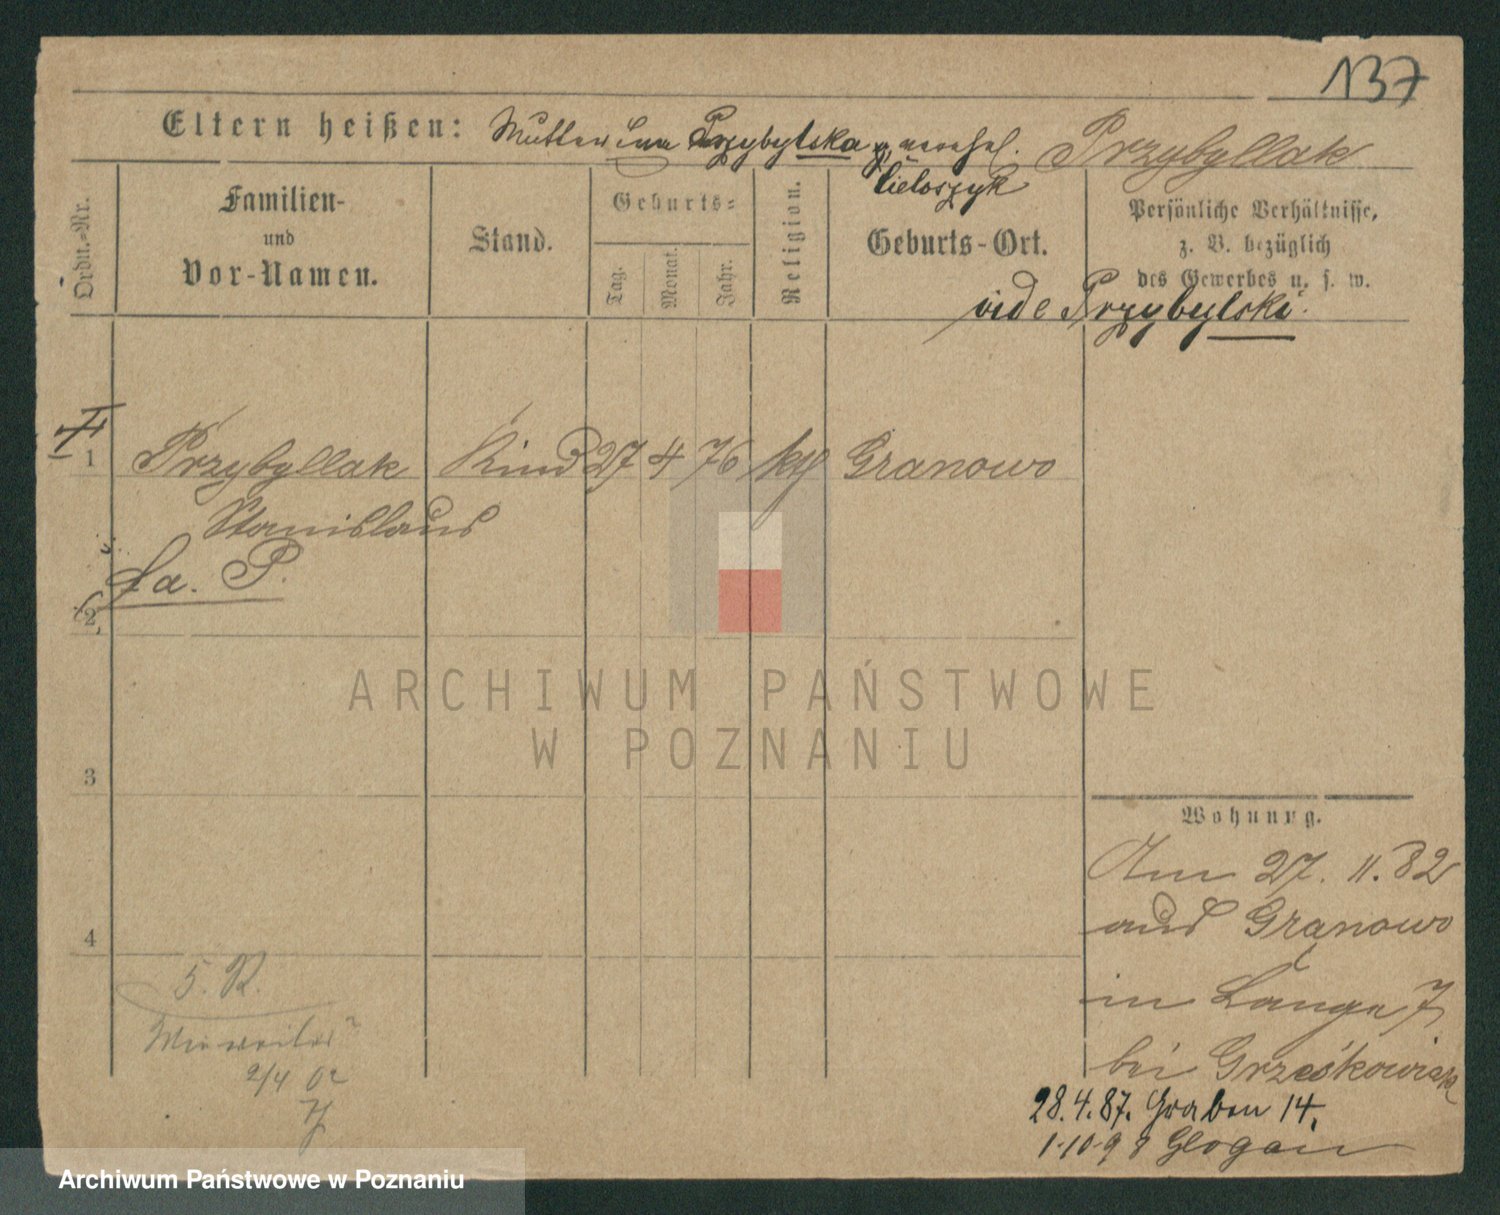 137
Eltern heißen: Mutter Przybylska verehel. Przybyllak
Cieloszyk
Ordn.-Nr.
Familien-
und
Vor-Namen.
Stand.
Geburts-
Tag.
Monat.
Jahr.
Religion.
Geburts-Ort.
Persönliche Verhältnisse,
z. B. bezüglich
des Gewerbes u. s. w.
vide Przybylski.
1 Przybyllak Kind 27 4 76 kth Granowo
Stanislaus
La. P.
2
3
4
Wohnung.
Am 27. 11. 82
aus Granowo
in Lange 7
bei Grześkowiak
28.4.87. Graben 14.
1.10.98 Glogau
5. R.
Wie weiter?
2/4 02
ARCHIWUM PAŃSTWOWE
W POZNANIU
Archiwum Państwowe w Poznaniu